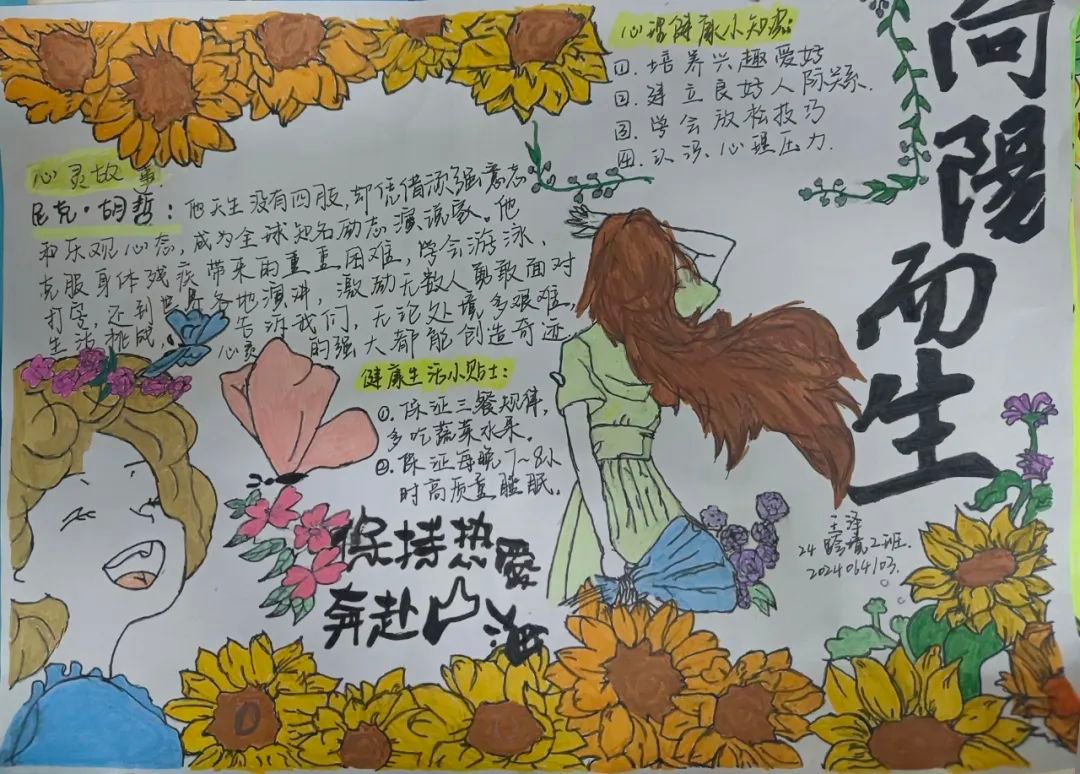 向陽而生
心理健康小知识:
①. 培养兴趣爱好
②. 建立良好人际关系.
③. 学会放松技巧
④. 认识心理压力.
心灵故事
尼克·胡哲: 他天生没有四肢, 却凭借顽强意志
和乐观心态, 成为全球知名励志演说家. 他
克服身体残疾带来的重重困难, 学会游泳、
打字, 还到世界各地演讲, 激励无数人勇敢面对
生活挑战, 告诉我们, 无论处境多艰难,
心灵的强大都能创造奇迹.
健康生活小贴士:
①. 保证三餐规律,
多吃蔬菜水果.
②. 保证每晚7~8小
时高质量睡眠.
保持热愛
奔赴山海
24 2班.